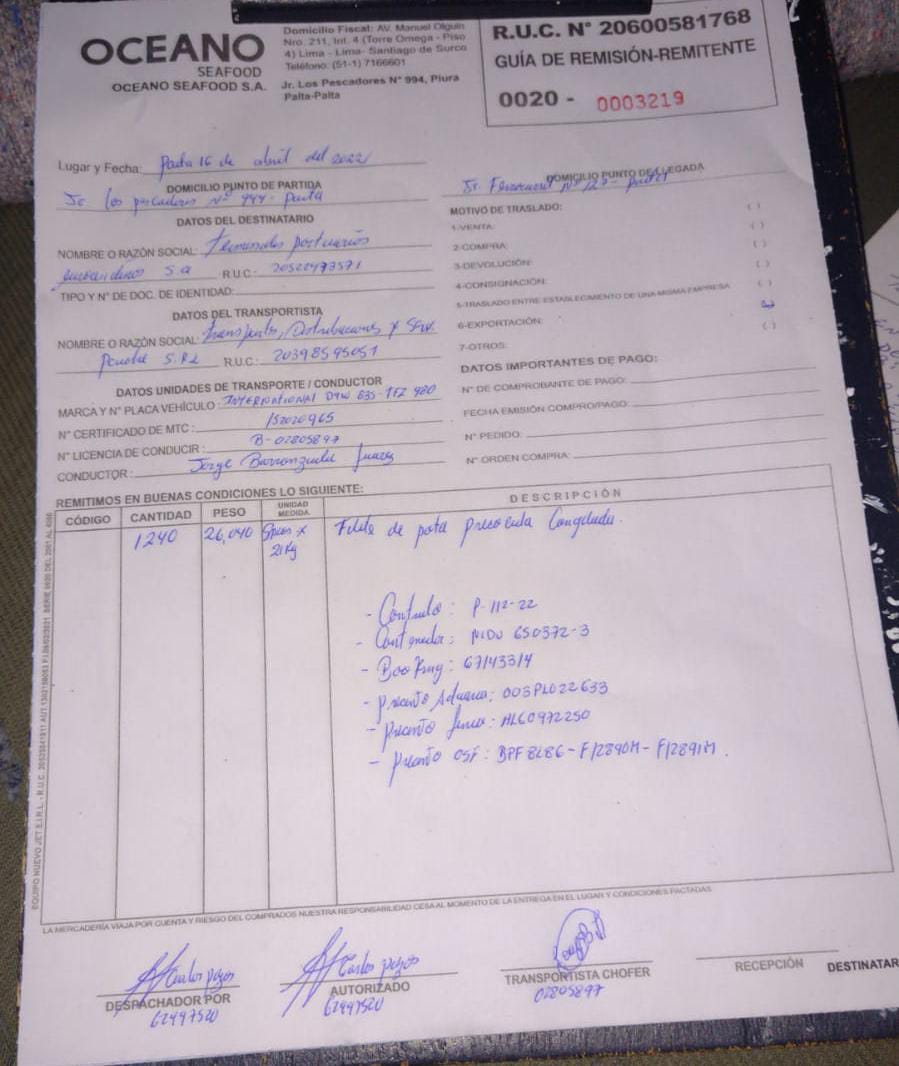 OCEANO
SEAFOOD
OCEANO SEAFOOD S.A.
Domicilio Fiscal: AV. Manuel Olguin
Nro. 211, Int. 4 (Torre Omega - Piso
4) Lima - Lima- Santiago de Surco
Teléfono: (51-1) 7166601
Jr. Los Pescadores N° 994, Piura
Paita-Paita
R.U.C. N° 20600581768
GUÍA DE REMISIÓN-REMITENTE
0020 - 0003219
Lugar y Fecha: Paita 16 de abril del 2022
DOMICILIO PUNTO DE PARTIDA
Jr los pescadores Nº 994- paita
DOMICILIO PUNTO DE LLEGADA
Jr. Ferrocarril Nº 127- paita
DATOS DEL DESTINATARIO
NOMBRE O RAZÓN SOCIAL: Terminales portuarios
euroandinos S.a R.U.C: 20522473571
TIPO Y N° DE DOC. DE IDENTIDAD:
DATOS DEL TRANSPORTISTA
NOMBRE O RAZÓN SOCIAL: Transportes, Distribuciones y Serv.
S.R.L R.U.C.: 20398595051
DATOS UNIDADES DE TRANSPORTE / CONDUCTOR
MARCA Y N° PLACA VEHÍCULO: INTERNATIONAL D9W 835- 980
N° CERTIFICADO DE MTC: 152020965
N° LICENCIA DE CONDUCIR: B-02805897
CONDUCTOR: Jorge Barranzuela Juarez
MOTIVO DE TRASLADO: ( )
1-VENTA: ( )
2-COMPRA: ( )
3-DEVOLUCIÓN: ( )
4-CONSIGNACIÓN:
5-TRASLADO ENTRE ESTABLECIMIENTO DE UNA MISMA EMPRESA ( )
6-EXPORTACIÓN: ( )
7-OTROS:
DATOS IMPORTANTES DE PAGO:
N° DE COMPROBANTE DE PAGO:
FECHA EMISIÓN COMPRO/PAGO:
N° PEDIDO:
N° ORDEN COMPRA:
REMITIMOS EN BUENAS CONDICIONES LO SIGUIENTE:
CÓDIGO CANTIDAD PESO UNIDAD MEDIDA DESCRIPCIÓN
1240 26,040 Sacos x 21Kg Filete de pota precocida Congelada.
- Contrato: P-112-22
- Contenedor: MEDU 650372-3
- Booking: 67143314
- precinto Aduana: 003PL022633
- precinto Linea: HLG0972250
- precinto OSF: BPF8286-F12890M-F12891M.
LA MERCADERÍA VIAJA POR CUENTA Y RIESGO DEL COMPRADOS NUESTRA RESPONSABILIDAD CESA AL MOMENTO DE LA ENTREGA EN EL LUGAR Y CONDICIONES PACTADAS
Carlos pozos
DESPACHADOR POR
62497520
Carlos pozos
AUTORIZADO
62497520
TRANSPORTISTA CHOFER
02805897
RECEPCIÓN DESTINATAR